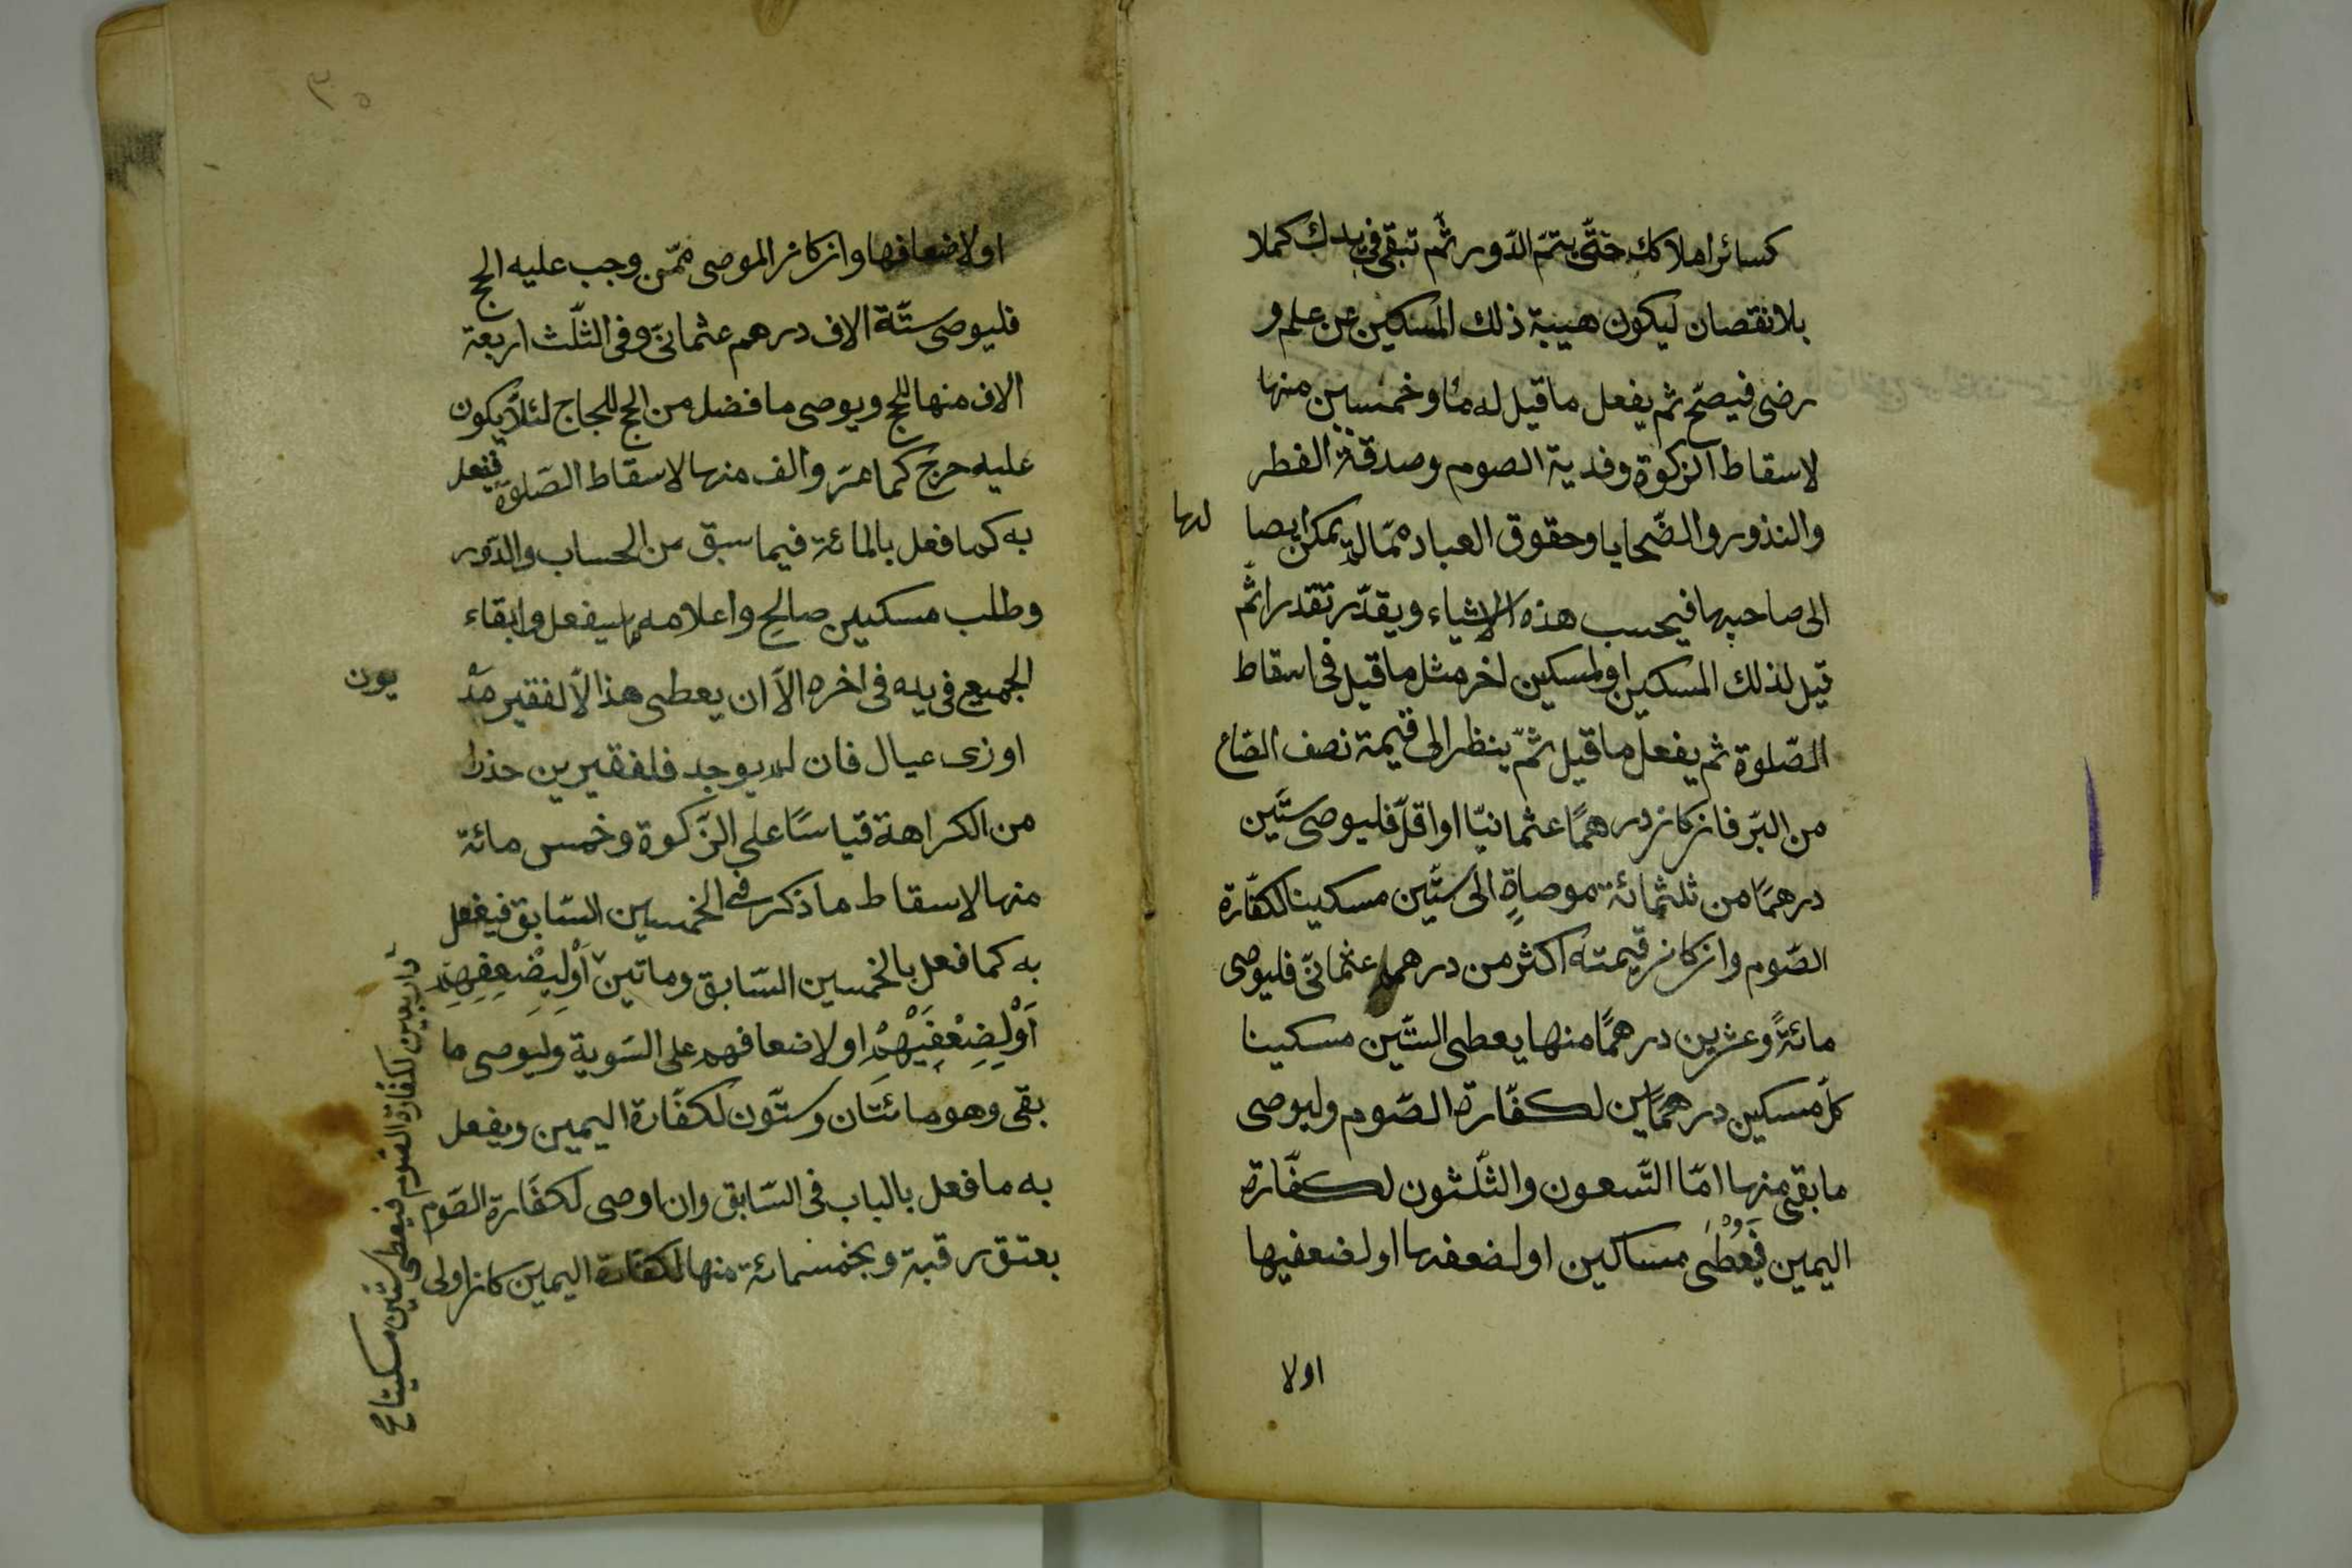 كسائر املاكك حتّى يتمّ الدّور ثمّ تبقى فى يدك كملا
بلا نقصان ليكون هيبة ذلك المسكين عن علم و
رضى فيصحّ ثم يفعل ما قيل له مائة وخمسين منها
لاسقاط الزكوة وفدية الصوم وصدقة الفطر
والنذور والضّحايا وحقوق العباد ممّا لم يمكن ايصا لها
الى صاحبها فيحسب هذه الاشياء ويقدّر تقدرا ثمّ
قيل لذلك المسكين او لمسكين اخر مثل ما قيل فى اسقاط
الصّلوة ثم يفعل ما قيل ثمّ ينظر الى قيمة نصف الصّاع
من البرّ فان كان درهمًا عثمانيّا او اقلّ فليوصى ستّين
درهمًا من ثلثمائة موصاةٍ الى ستّين مسكينا لكفّارة
الصّوم وان كان قيمته اكثر من درهم عثمانىّ فليوصى
مائةً وعشرين درهمًا منها يعطى الستّين مسكينا
كلّ مسكين درهمًاين لكفّارة الصّوم وليوصى
ما بقى منها امّا التّسعون والثّلثون لكفّارة
اليمين فَيُعْطَى مساكين او لضعفها او لضعفيها
اولا
٣٥
اولاضعافها وان كان الموصى ممّن وجب عليه الحج
فليوصى ستّة الاف درهم عثمانىّ وفى الثلّث اربعة
الاف منها للحج ويوصى ما فضل من الحج للحجاج لئلّا يكون
عليه حرج كما مرّ والف منها لاسقاط الصّلوة فيفعل
به كما فعل بالمائة فيما سبق من الحساب والدّور
وطلب مسكين صالح واعلامه بما سيفعل وابقاء
الجميع فى يده فى اخره الاّ ان يعطى هذا الاّ لفقير مَدْ يون
او ذى عيال فان لم يوجد فلفقيرين حذرا
من الكراهة قياسًا على الزّكوة وخمس مائة
منها لاسقاط ما ذكر فى الخمسين السّابق فيفعل
به كما فعل بالخمسين السّابق وماتين اَوْلِيضْعِفِهِم
اَوْلِيضِعْفِيَهْمْ او لاضعافهم على السّوية وليوصى ما
بقى وهو مائتان وستّون لكفّارة اليمين ويفعل
به ما فعل بالباب فى السّابق وان اوصى لكفّارة الصّوم
بعتق رقبة وبخمسمائة منها لكفّارة اليمين كان اولى
واربعين لكفّارة الصّوم فيعطى ستّين مسكينا صح